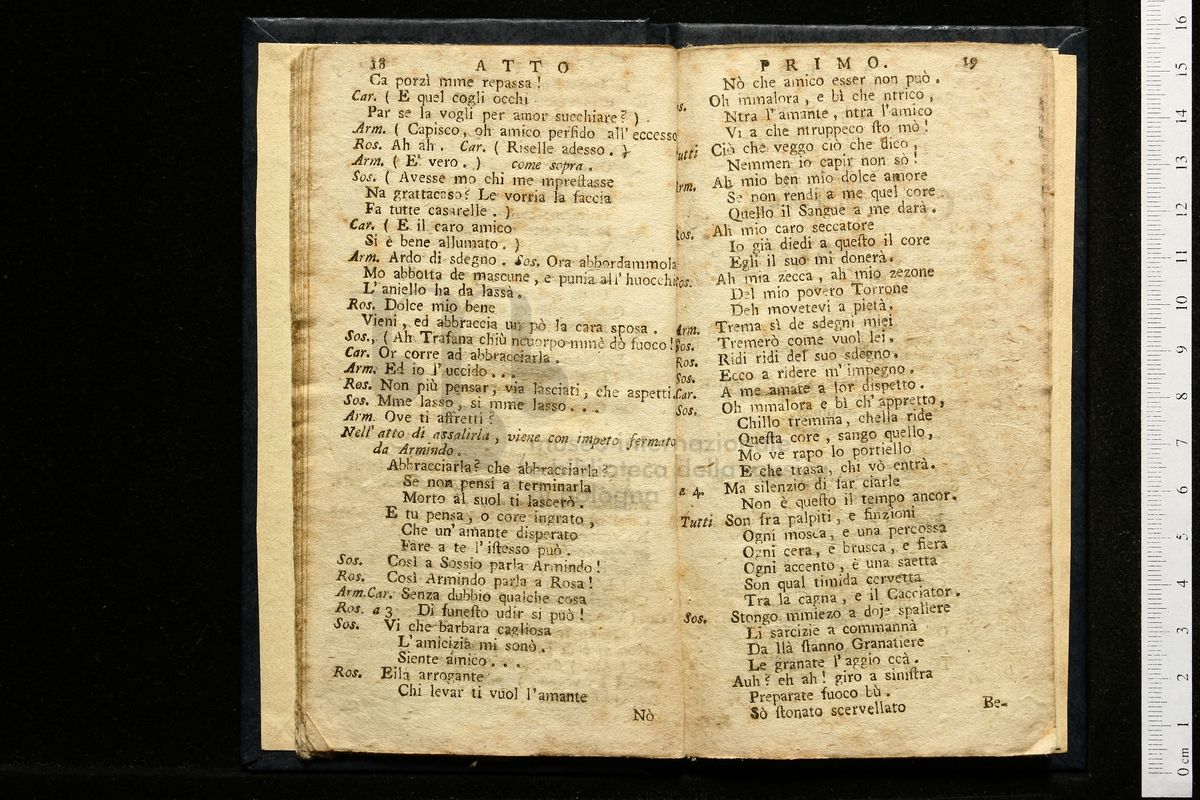 18 ATTO
Ca porzì mme repassa !
Car. ( E quel cogli occhi
Par se la vogli per amor succhiare? ) .
Arm. ( Capisco, oh amico perfido all' eccesso
Ros. Ah ah . Car. ( Riselle adesso . )
Arm. ( E' vero . ) come sopra .
Sos. ( Avesse mo chi me mpreſtasse
Na grattacaso? Le vorria la faccia
Fa tutte casarelle . )
Car. ( E il caro amico
Si è bene allumato . )
Arm. Ardo di sdegno . Sos. Ora abbordammola
Mo abbotta de mascune , e punia all' huocchi
L' aniello ha da lassà .
Ros. Dolce mio bene
Vieni , ed abbraccia un pò la cara sposa .
Sos., ( Ah Trafana chiù ncuorpo mme dò fuoco !
Car. Or corre ad abbracciarla .
Arm. Ed io l' uccido . . .
Ros. Non più pensar , via lasciati, che aspetti
Sos. Mme lasso , si mme lasso . . .
Arm. Ove ti affretti ?
Nell' atto di assalirla , viene con impeto fermato
da Armindo .
Abbracciarla? che abbracciarla ?
Se non pensi a terminarla
Morto al suol ti lascerò .
E tu pensa , o core ingrato ,
Che un' amante disperato
Fare a te l' iſtesso può .
Sos. Così a Sossio parla Armindo !
Ros. Così Armindo parla a Rosa !
Arm.Car. Senza dubbio qualche cosa
Ros. a 3 Di funeſto udir si può !
Sos. Vi che barbara cagliosa
L' amicizia mi sonò .
Siente amico . . .
Ros. Eila arrogante
Chi levar ti vuol l' amante
Nò
PRIMO. 19
Nò che amico esser non può .
os. Oh mmalora , e bì che ntrico ,
Ntra l' amante , ntra l' amico
Vi a che ntruppeco ſto mò !
utti Ciò che veggo ciò che dico ,
Nemmen io capir non sò !
Arm. Ah mio ben mio dolce amore
Se non rendi a me quel core
Quello il Sangue a me darà .
Ros. Ah mio caro seccatore
Io già diedi a queſto il core
Egli il suo mi donerà .
Sos. Ah mia zecca , ah mio zezone
Del mio povero Torrone
Deh movetevi a pietà .
Arm. Trema sì de sdegni miei
Sos. Tremerò come vuol lei .
Ros. Ridi ridi del suo sdegno .
Sos. Ecco a ridere m' impegno .
Car. A me amate a lor dispetto .
Sos. Oh mmalora e bì ch' appretto ,
Chillo tremma , chella ride
Queſta core , sango quello ,
Mo ve rapo lo portiello
E che trasa , chi vò entrà .
a 4. Ma silenzio di far ciarle
Non è queſto il tempo ancor .
Tutti Son fra palpiti , e finzioni
Ogni mosca, e una percossa
Ogni cera , è brusca , e fiera
Ogni accento , è una saetta
Son qual timida cervetta
Tra la cagna , e il Cacciator .
Sos. Stongo mmiezo a doje spallere
Li sarcizie a commannà
Da llà ſtanno Granatiere
Le granate l' aggio ccà .
Auh ? eh ah ! giro a siniſtra
Preparate fuoco bù .
Sò ſtonato scervellato
Be-
museo internazionale
biblioteca della
bologna
0 cm 1 2 3 4 5 6 7 8 9 10 11 12 13 14 15 16